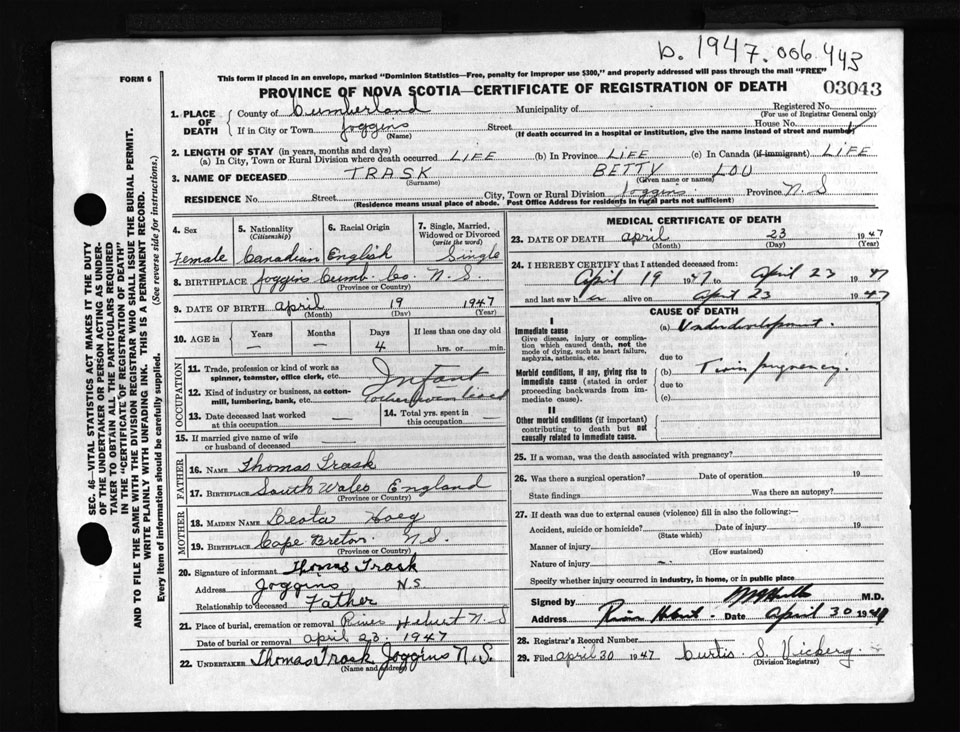 b. 1947.006.443
FORM 6
This form if placed in an envelope, marked "Dominion Statistics—Free, penalty for improper use $300," and properly addressed will pass through the mail "FREE"
PROVINCE OF NOVA SCOTIA—CERTIFICATE OF REGISTRATION OF DEATH 03043
1. PLACE OF DEATH County of Cumberland Municipality of Registered No.
(For use of Registrar General only)
If in City or Town Joggins Street House No.
(Name) (If death occurred in a hospital or institution, give the name instead of street and number)
2. LENGTH OF STAY (in years, months and days)
(a) In City, Town or Rural Division where death occurred LIFE (b) In Province LIFE (c) In Canada (if immigrant) LIFE
3. NAME OF DECEASED TRASK BETTY LOU
(Surname) (Given name or names)
RESIDENCE No. Street City, Town or Rural Division Joggins Province N. S
(Residence means usual place of abode. Post Office Address for residents in rural parts not sufficient)
4. Sex 5. Nationality (Citizenship) 6. Racial Origin 7. Single, Married, Widowed or Divorced (write the word)
Female Canadian English Single
8. BIRTHPLACE Joggins Cumb. Co. N. S.
(Province or Country)
9. DATE OF BIRTH April 19 1947
(Month) (Day) (Year)
10. AGE in Years Months Days If less than one day old
— — 4 hrs. or min.
OCCUPATION
11. Trade, profession or kind of work as spinner, teamster, office clerk, etc. Infant
12. Kind of industry or business, as cotton-mill, lumbering, bank, etc.
13. Date deceased last worked at this occupation —
14. Total yrs. spent in this occupation —
15. If married give name of wife or husband of deceased —
FATHER
16. NAME Thomas Trask
17. BIRTHPLACE South Wales England
(Province or Country)
MOTHER
18. MAIDEN NAME Leota Hoeg
19. BIRTHPLACE Cape Breton N.S.
(Province or Country)
20. Signature of informant Thomas Trask
Address Joggins N.S.
Relationship to deceased Father
21. Place of burial, cremation or removal River Hebert N. S
Date of burial or removal april 23. 1947
22. UNDERTAKER Thomas Trask Joggins N. S.
(Name and Address)
MEDICAL CERTIFICATE OF DEATH
23. DATE OF DEATH April 23 1947
(Month) (Day) (Year)
24. I HEREBY CERTIFY that I attended deceased from:
April 19 1947 to April 23 1947
and last saw h er alive on April 23 1947
CAUSE OF DEATH
I
Immediate cause (a) Underdevelopment.
Give disease, injury or complication which caused death, not the mode of dying, such as heart failure, asphyxia, asthenia, etc.
due to
Morbid conditions, if any, giving rise to immediate cause (stated in order proceeding backwards from immediate cause). (b) Twin pregnancy.
due to
(c)
II
Other morbid conditions (if important) contributing to death but not causally related to immediate cause.
25. If a woman, was the death associated with pregnancy?
26. Was there a surgical operation? Date of operation 19
State findings Was there an autopsy?
27. If death was due to external causes (violence) fill in also the following:—
Accident, suicide or homicide? Date of injury 19
(State which)
Manner of injury
(How sustained)
Nature of injury —
Specify whether injury occurred in industry, in home, or in public place
Signed by M.D.
Address River Hebert Date April 30 1947
28. Registrar's Record Number
29. Filed April 30 1947 Curtis S. Vickery
(Division Registrar)
SEC. 46—VITAL STATISTICS ACT MAKES IT THE DUTY
OF THE UNDERTAKER OR PERSON ACTING AS UNDER-
TAKER TO OBTAIN ALL THE PARTICULARS REQUIRED
IN THE "CERTIFICATE OF REGISTRATION OF DEATH"
AND TO FILE THE SAME WITH THE DIVISION REGISTRAR WHO SHALL ISSUE THE BURIAL PERMIT.
WRITE PLAINLY WITH UNFADING INK. THIS IS A PERMANENT RECORD.
Every item of information should be carefully supplied. (See reverse side for instructions.)